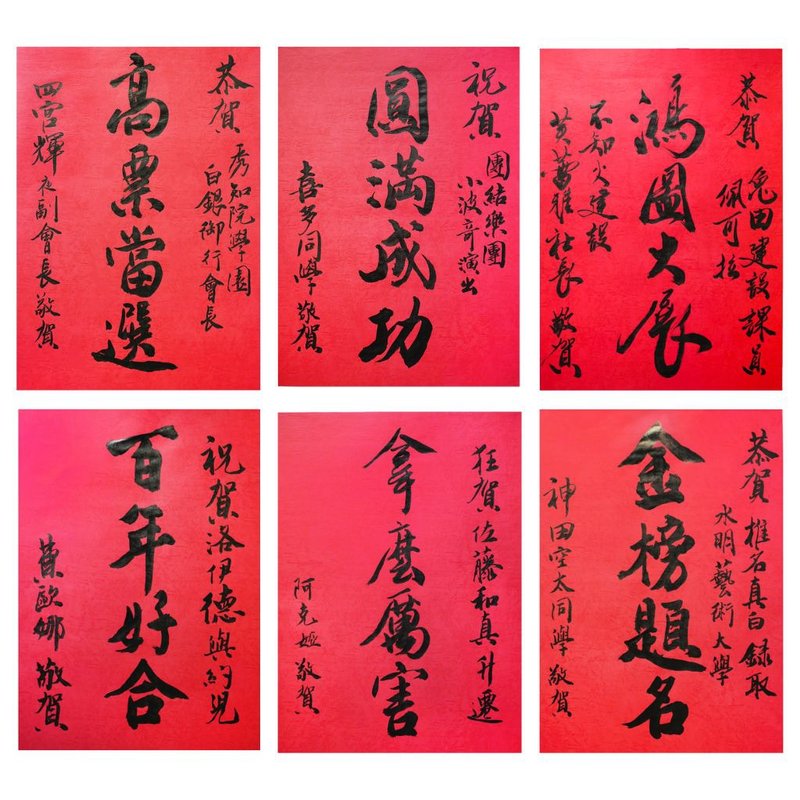 恭賀
秀知院學園
白銀御行會長
高票當選
四宮輝夜副會長敬賀
祝賀
團結樂團
小波奇演出
圓滿成功
喜多同學敬賀
恭賀
兔田建設課員
佩可拉
鴻圖大展
不知火建設
芙蕾雅社長敬賀
祝賀洛伊德與約兒
百年好合
費歐娜敬賀
狂賀佐藤和真升遷
拿麼厲害
阿克婭敬賀
恭賀椎名真白錄取
水明藝術大學
金榜題名
神田空太同學敬賀